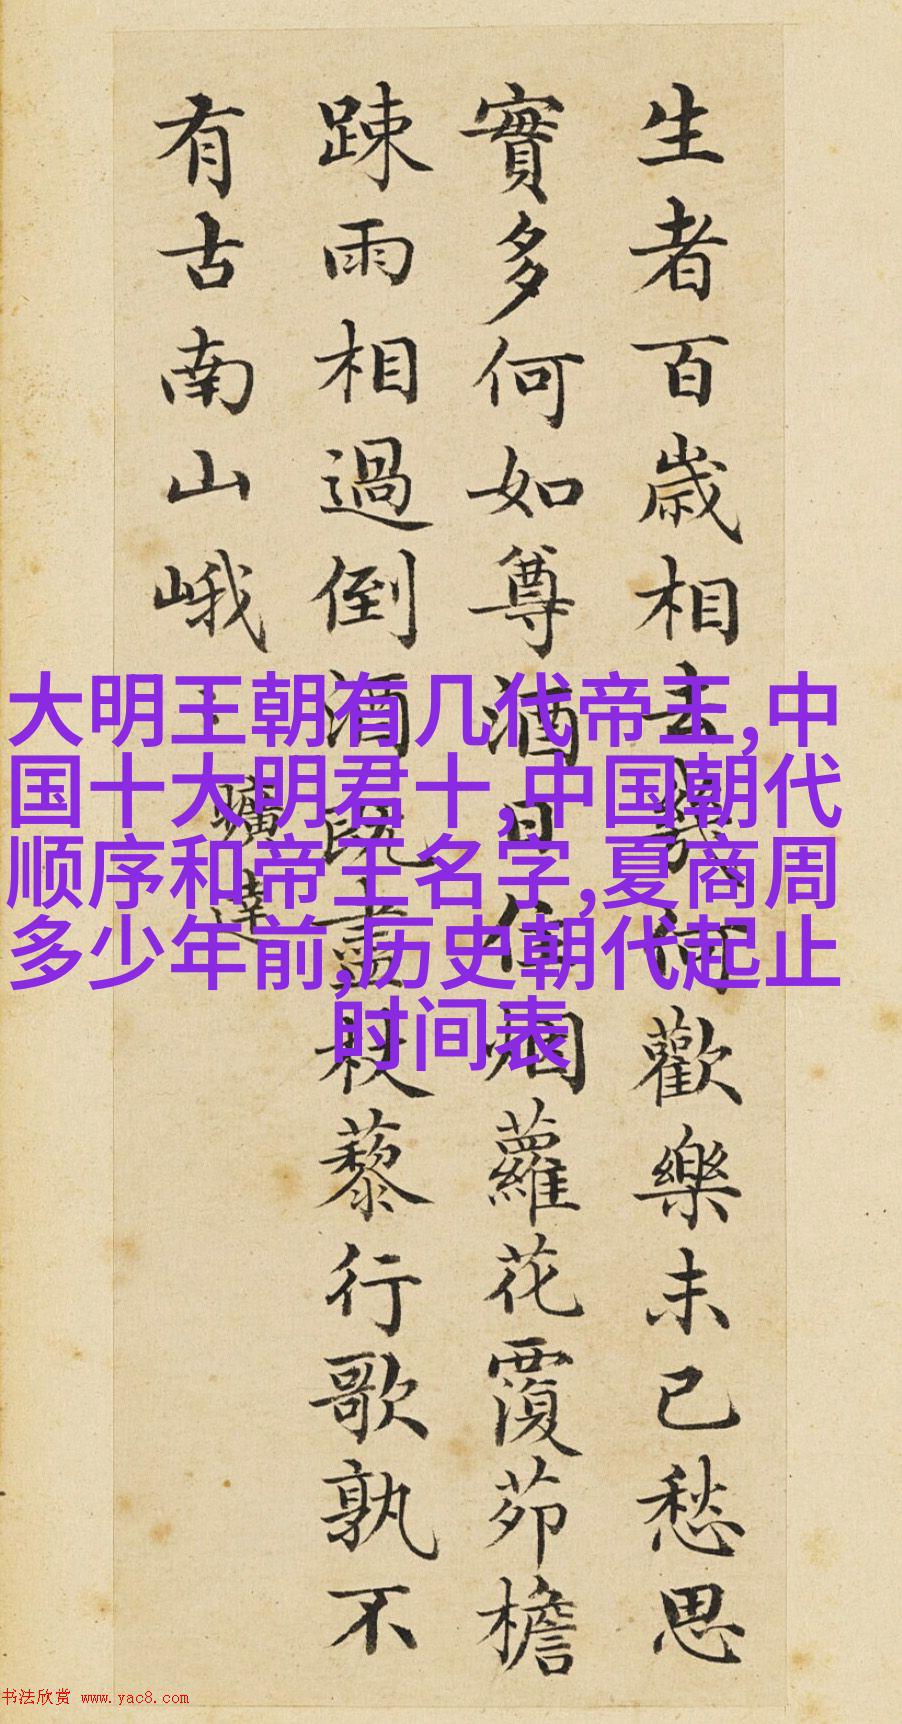 生者百歲相去幾何歡樂未已愁思
實多何如尊酒日往烟蘿花覆茆檐
踈雨相過倒酒既盡杖藜行歌孰不
有古南山峨
曠達
大明王朝有几代帝王,中
国十大明君十,中国朝代
顺序和帝王名字,夏商周
多少年前,历史朝代起止
时间表
书法欣赏 www.yac8.com